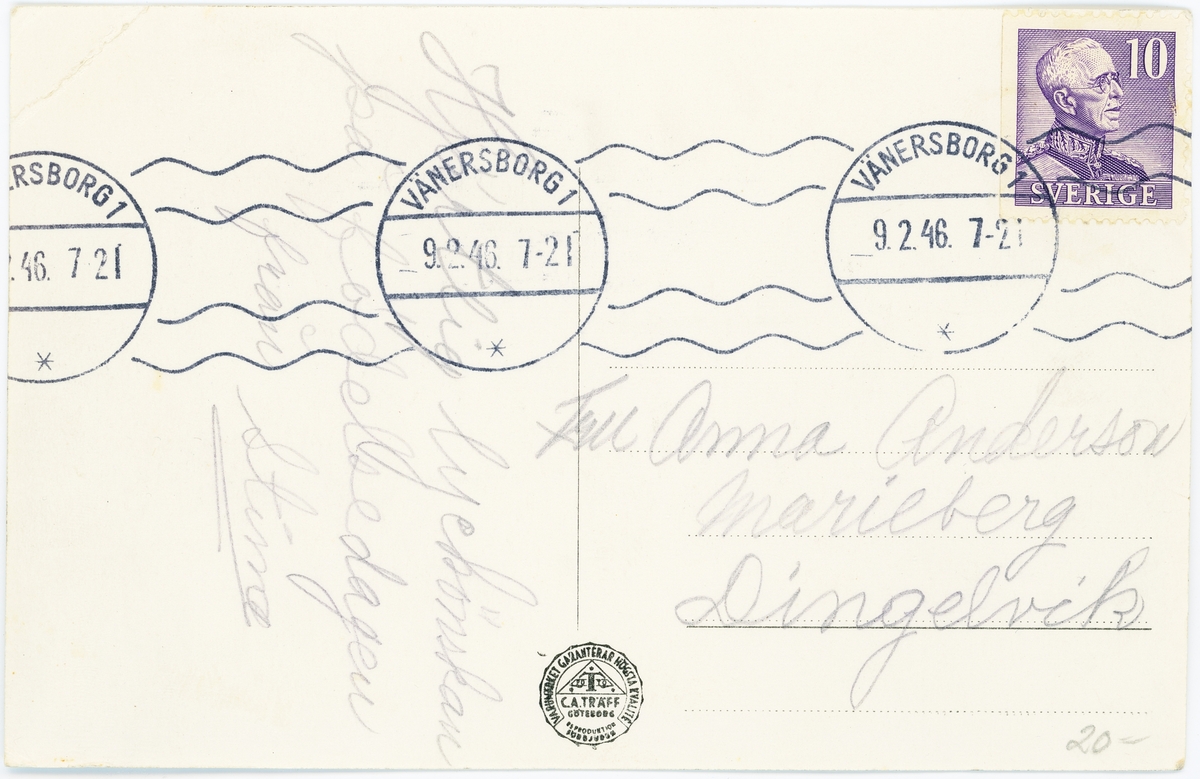 10
SVERIGE
VÄNERSBORG 1
9.2.46. 7-21
VÄNERSBORG 1
9.2.46. 7-21
RSBORG 1
.46. 7 21
Hjärtlig lyckönskan
på födelsedagen
från
Stina
Till Anna Anderson
Marieberg
Dingelvik
VARUMÄRKET GARANTERAR HÖGSTA KVALITÉ
C.A. TRÄFF
GÖTEBORG
REPRODUKTION
20-